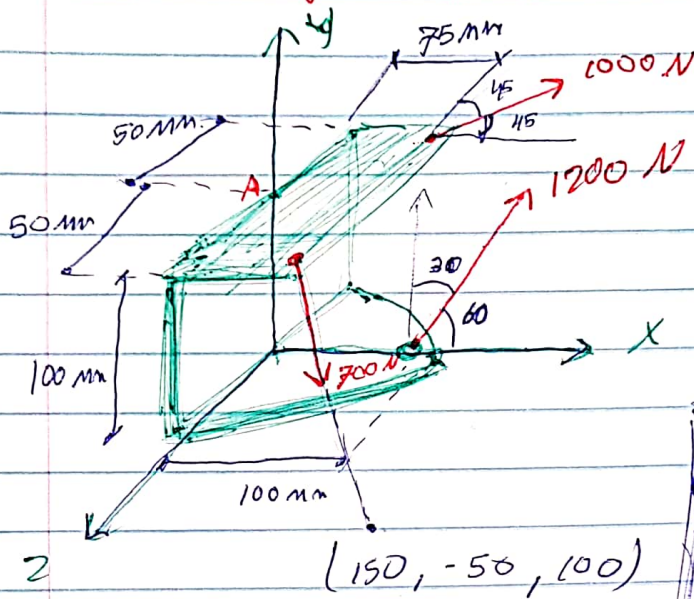 y
75 mm
1000 N
45
45
50 mm
1200 N
A
50 mm
30
60
x
700 N
100 mm
100 mm
z
(150, -50, 100)